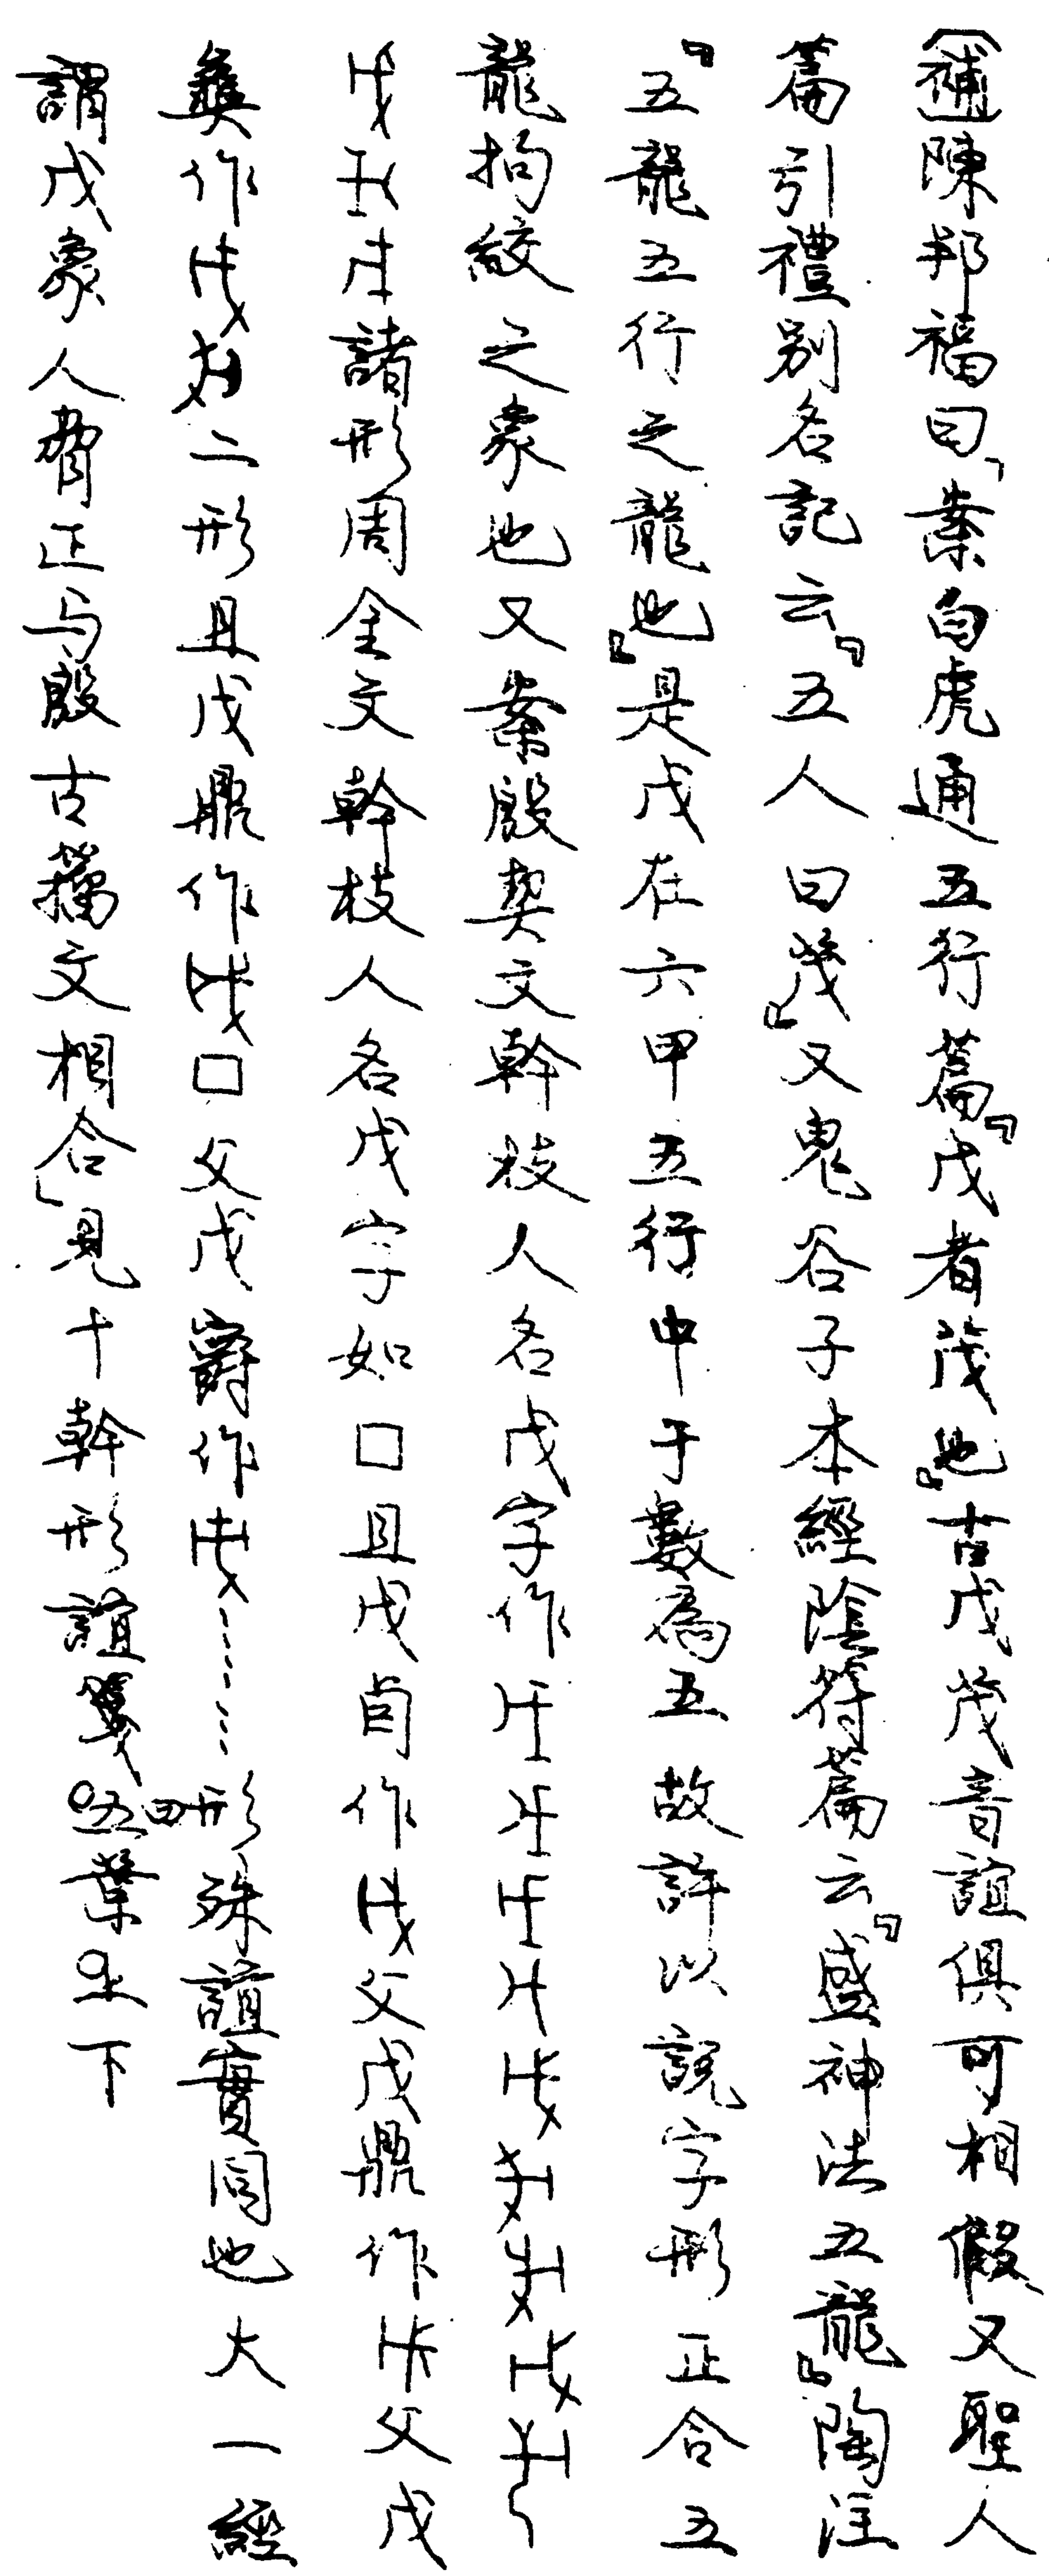 〔補〕陳邦福曰「案白虎通五行篇『戊者茂也』古戊茂音誼俱可相假又聖人
篇引禮別名記云『五人曰茂』又鬼谷子本經陰符篇云『盛神法五龍』陶注
『五龍五行之龍也』是戊在六甲五行中于數為五故許以說字形正合五
龍拘絞之象也又案殷契文幹枝人名戊字作
諸形周金文幹枝人名戊字如口且戊卣作父戊鼎作父戊
彝作二形且戊鼎作口父戊爵作……形殊誼實同也大一經
謂戊象人脅正与殷古籀文相合」見十幹形誼箋五葉上下